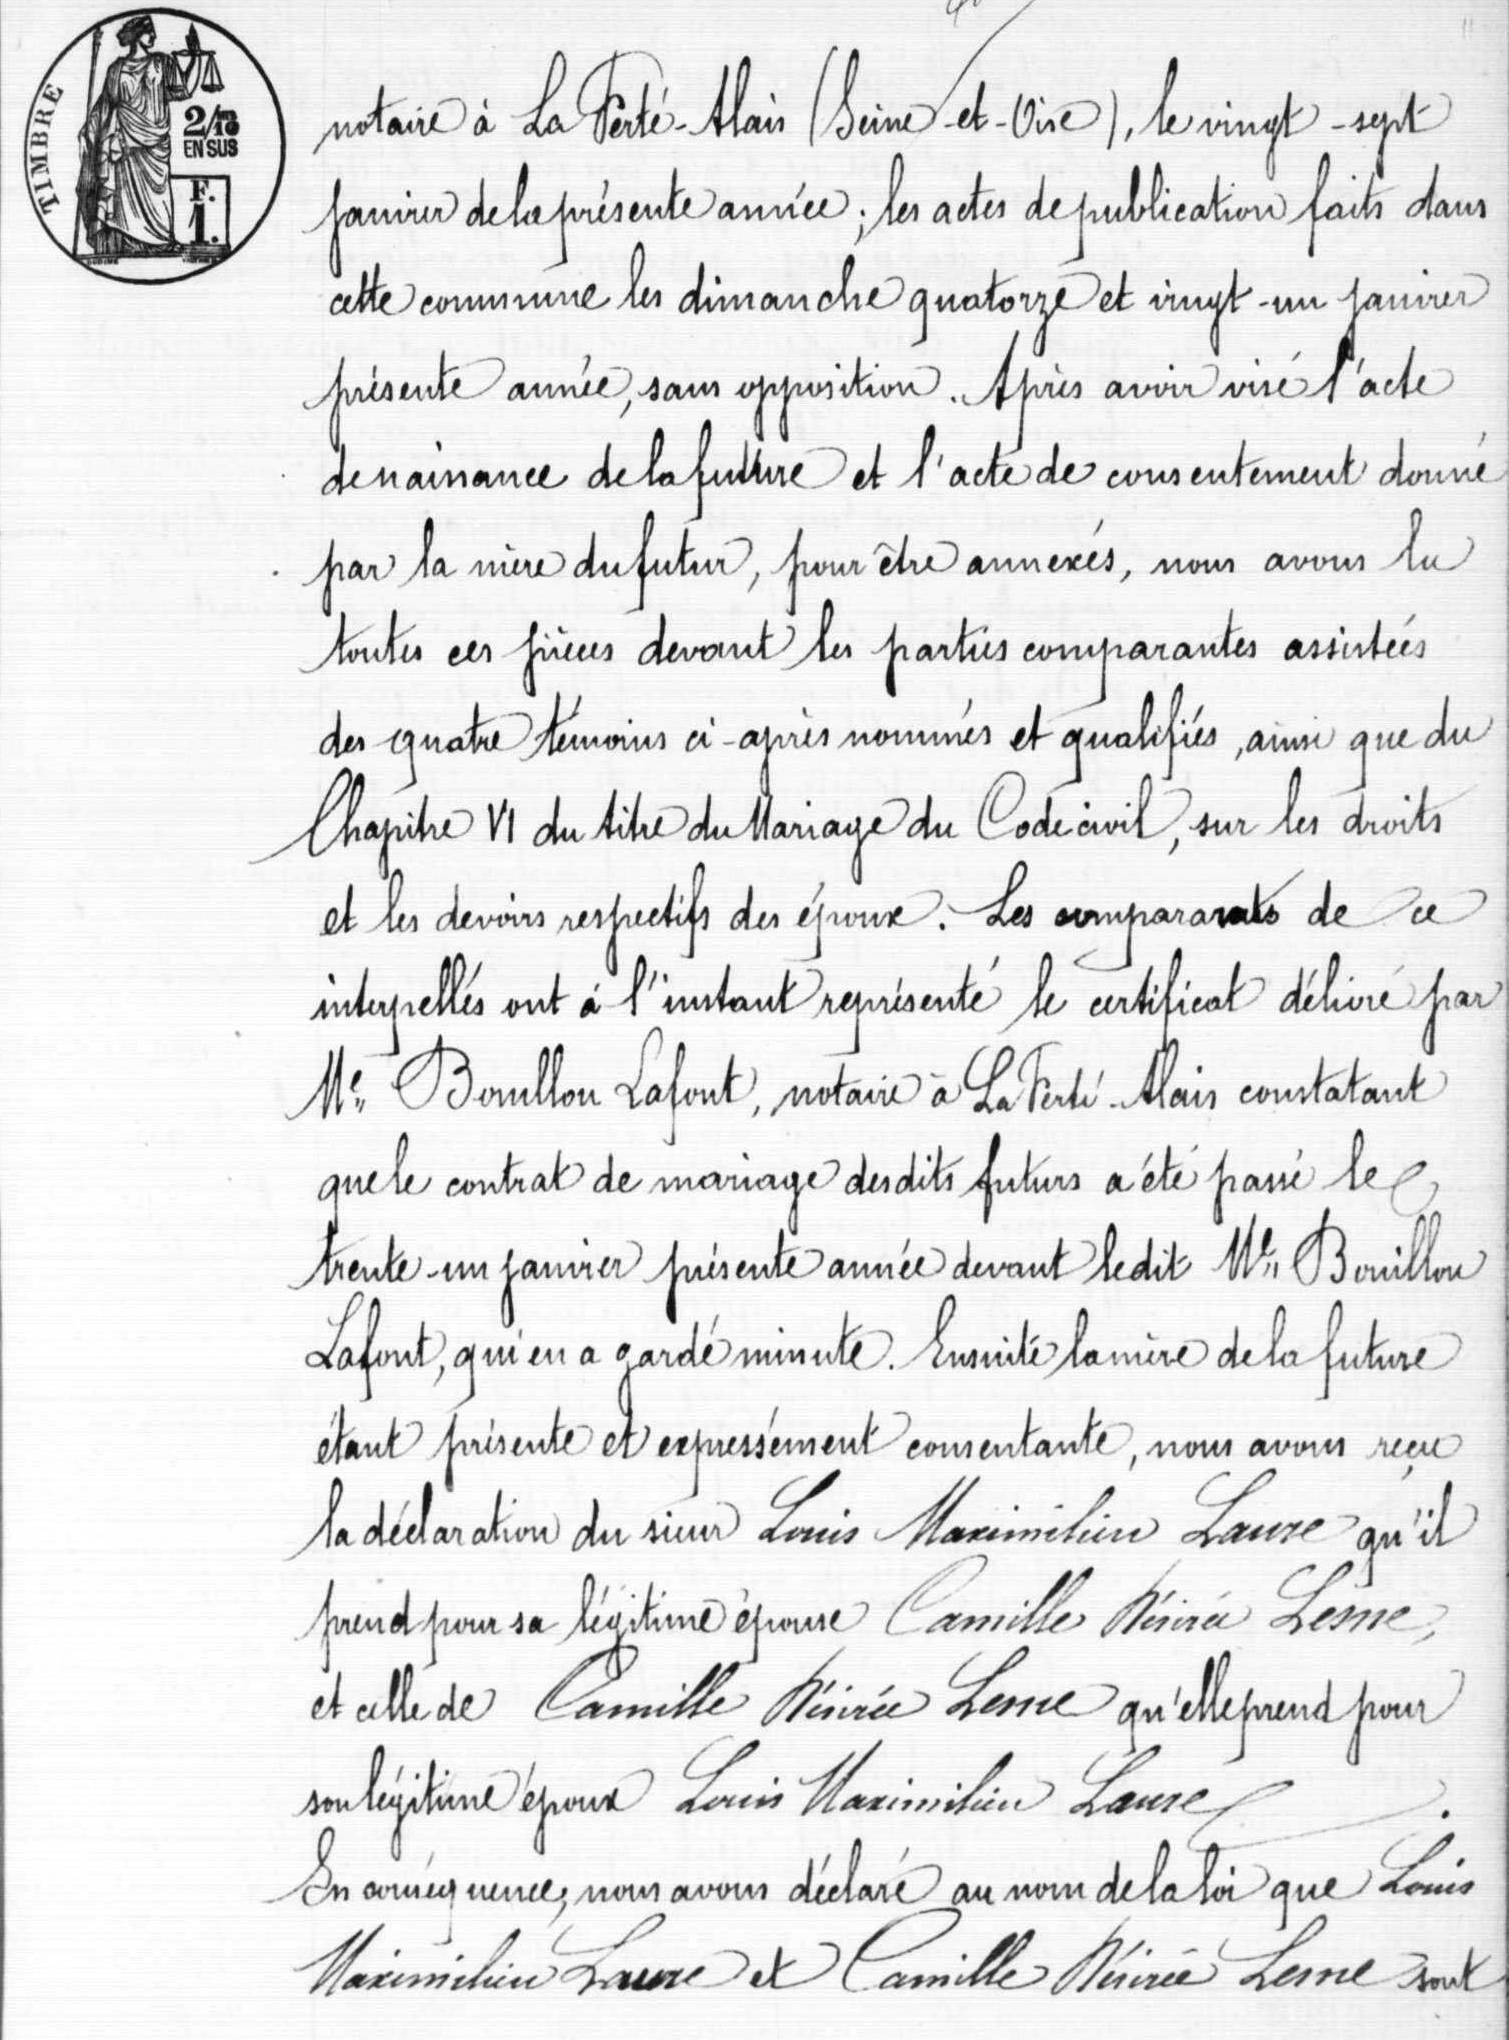 TIMBRE
2/10
EN SUS
F.
1.
notaire à La Ferté-Alais (Seine-et-Oise), le vingt-sept
janvier de la présente année; les actes de publication faits dans
cette commune les dimanche quatorze et vingt-un janvier
présente année, sans opposition. Après avoir visé l'acte
de naissance de la future et l'acte de consentement donné
par la mère du futur, pour être annexés, nous avons lu
toutes ces pièces devant les parties comparantes assistées
des quatre témoins ci-après nommés et qualifiés, ainsi que du
Chapitre VI du titre du Mariage du Code civil, sur les droits
et les devoirs respectifs des époux. Les comparants de ce
interpellés ont à l'instant représenté le certificat délivré par
Me Bouillon Lafont, notaire à La Ferté-Alais constatant
que le contrat de mariage desdits futurs a été passé le
trente-un janvier présente année devant ledit Me Bouillon
Lafont, qui en a gardé minute. Ensuite la mère de la future
étant présente et expressément consentante, nous avons reçu
la déclaration du sieur Louis Maximilien Laure qu'il
prend pour sa légitime épouse Camille Désirée Lesne,
et celle de Camille Désirée Lesne qu'elle prend pour
son légitime époux Louis Maximilien Laure.
En conséquence, nous avons déclaré au nom de la loi que Louis
Maximilien Laure et Camille Désirée Lesne sont